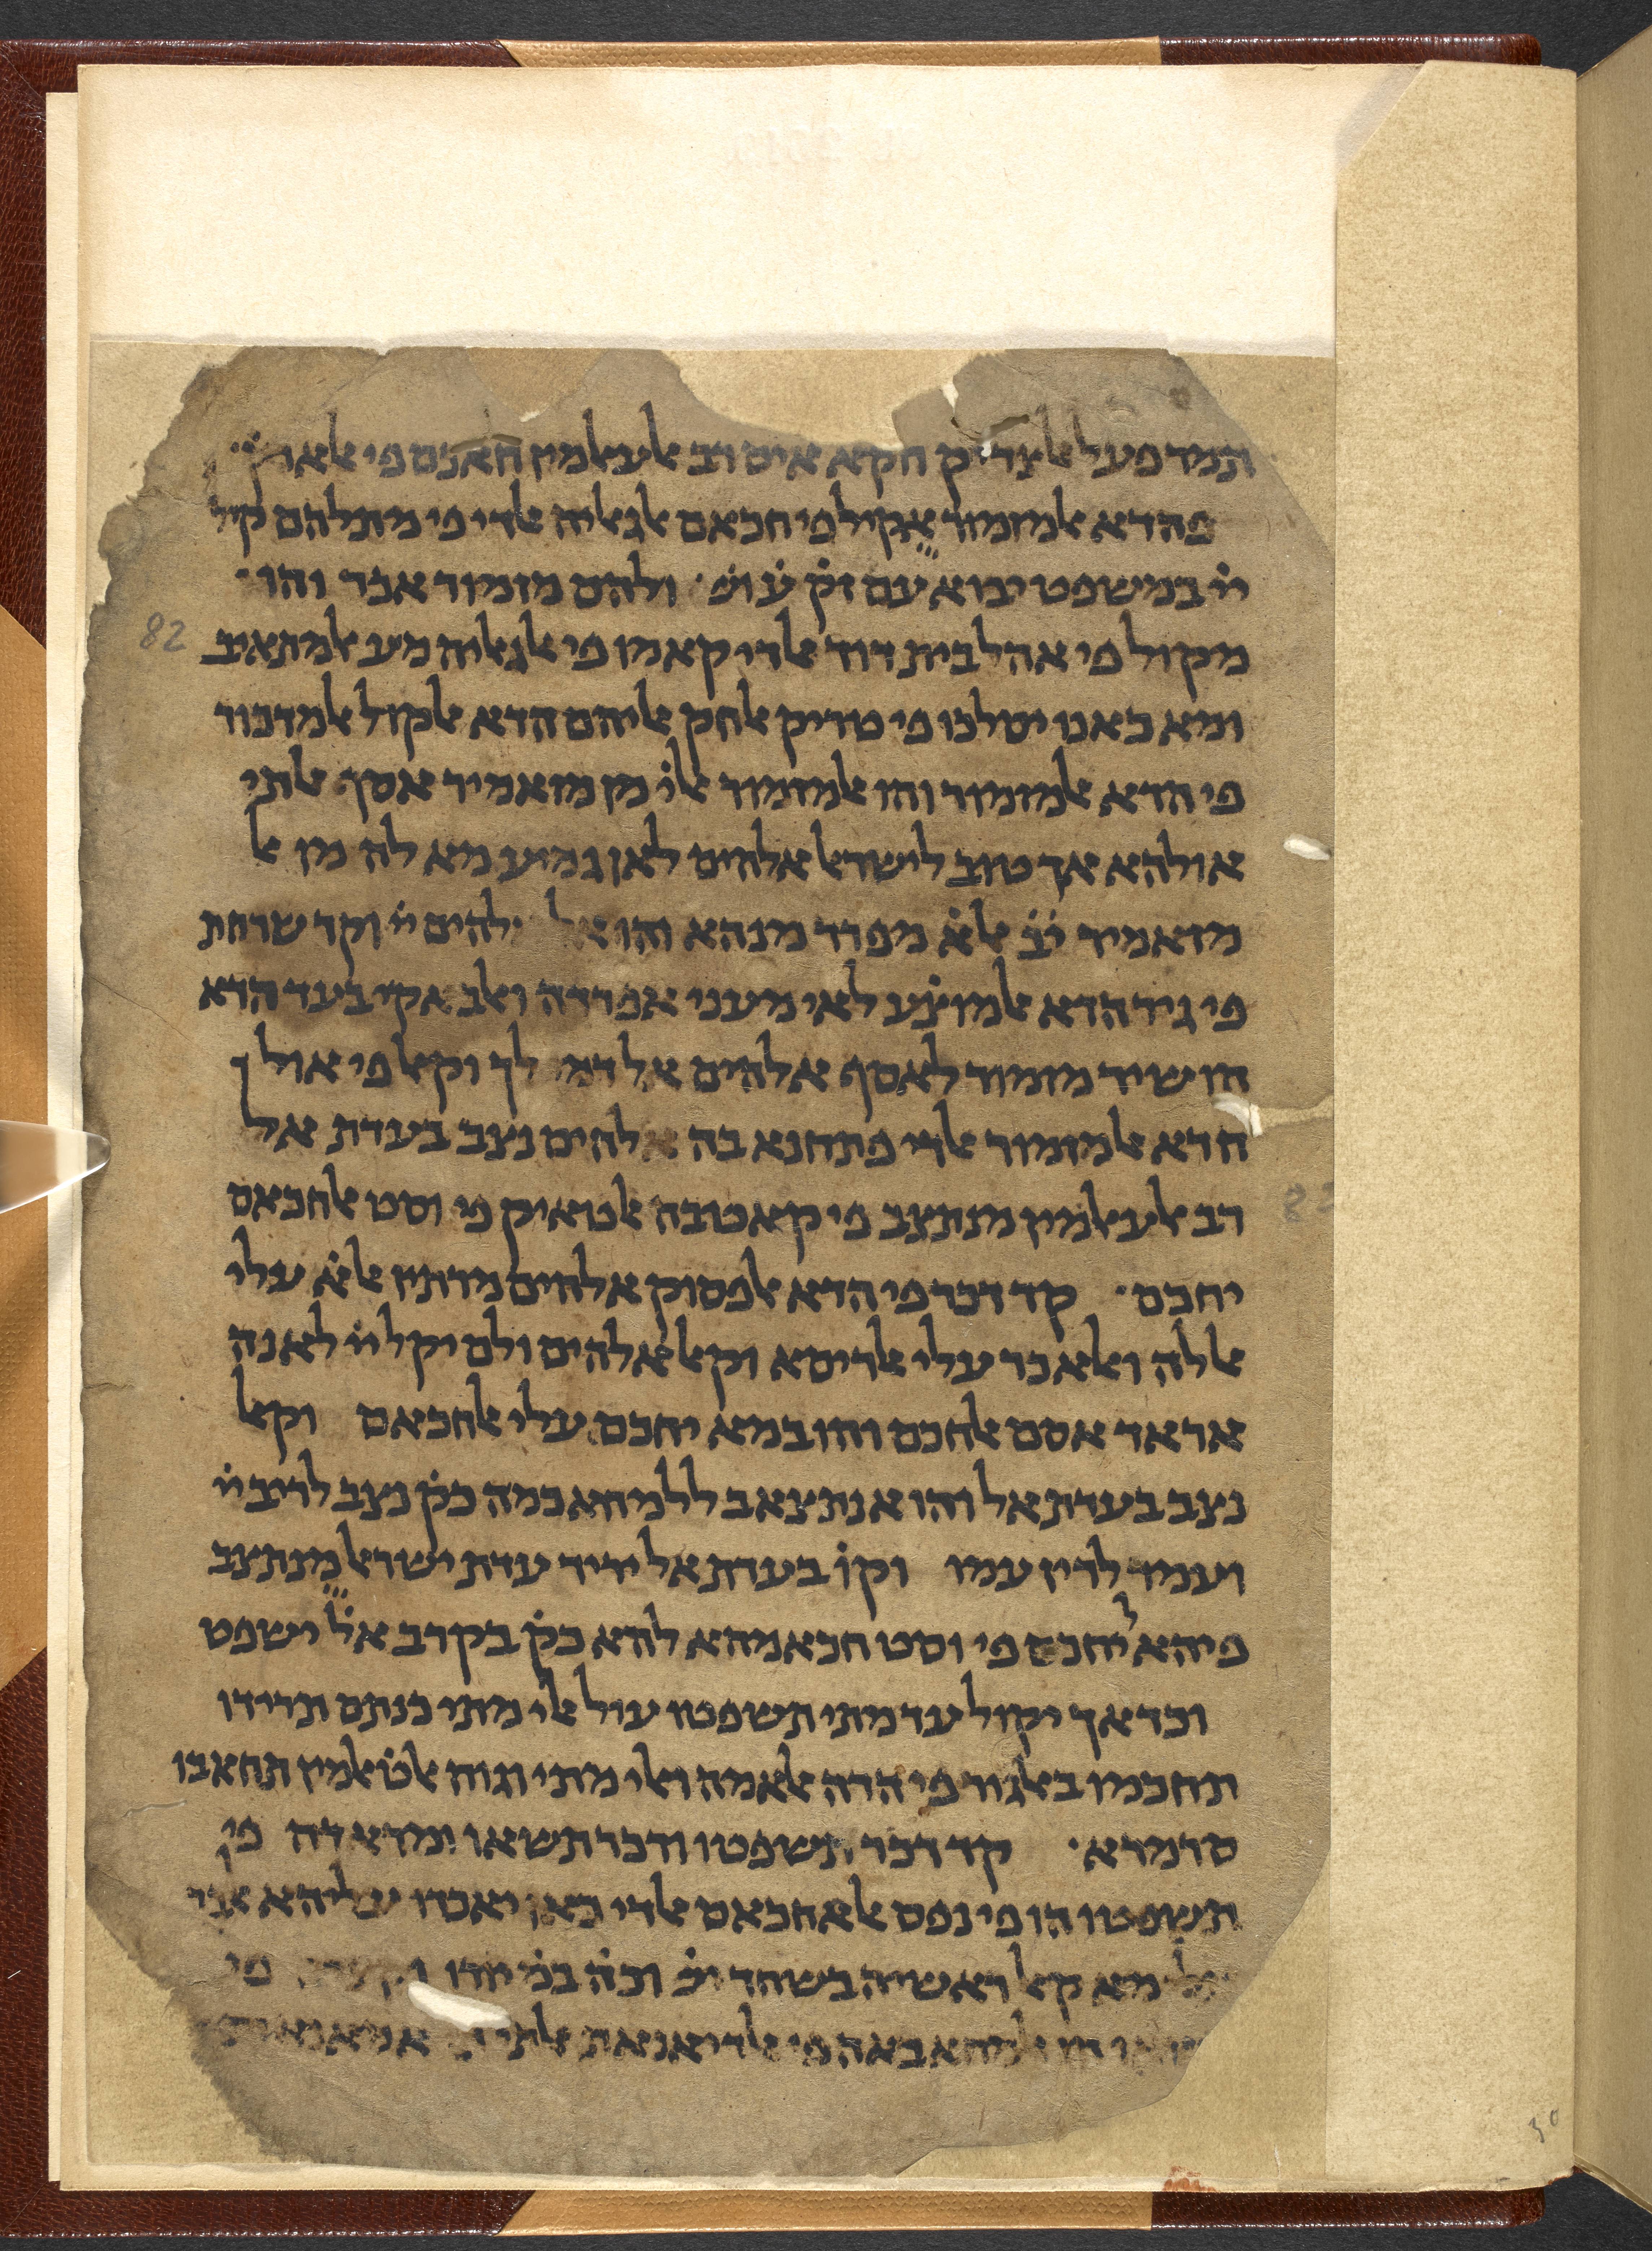 תמר פעל אלצדיק חקא איס רב אלעאלמין חאכם פי אלארץ׃
פהדא אלמזמור אקיל פי חכאם אלגאליה אלדי פי מתלהם קיל
ייֹ במשפט יבוא עם זקֹ עֹוֹפֹ׳ ולהם מזמור אכר והו׳
מקול פי אהל בית דוד אלדי קאמו פי אלגאליה מע אלמתאיב
ומא כאנו יסלכו פי טריק אלחק אליהם הדא אלקול אלמדכור
82
פי הדא אלמזמור והו אלמזמור אלוֹ מן מזאמיר אסף אלתי
אולהא אך טוב לישראל אלהים לאן גמיע מא לה מן אל
מזאמיר יֹבֹ אלאֹ מפרד מנהא והו אל להים ייֹ וקד שרחת
פי גיר הדא אלמוצֹע לאי מעני אפרדה ואלבאקי בעד הדא
הו שיר מזמור לאסף אלהים אל דמי לך וקאל פי אול
הדא אלמזמור אלדי פתחנא בה אלהים נצב בעדת אל
רב אלעאלמין מנתצב פי קאטבה אלטאיק פי וסט אלחכאם
יחכם׳ קד דכר פי הדא אלפסוק אלהים מרתין אלאֹ עלי
אללה ואלאכר עלי אלריסא וקאל אלהים ולם יקל ייֹ לאנה
אראד אסם אלחכם והו במא יחכם עלי אלחכאם וקאל
נצב בעדת אל והו אנתצאב ללמחאכמה כקֹ נצב לריב ייֹ
ועמד לדין עמו וקוֹ בעדת אל יריד עדת ישראל מנתצב
פיהא ליחכם פי וסט חכאמהא להדא כקֹ בקרב אלֹ ישפט
וכדאך יקול עד מתי תשפטו עול אלי מתי כנתם תרידו
תחכמו באלגור פי הדה אלאמה ואלי מתי וגוה אלטֹאלמין תחאבו
סרמדא׳ קד דכר תשפטו ודכר תשאו
תשפטו הו פי נפס אלאחכאם אלדי כאן יאכדו עליהא
מא קאל ראשיה בשחד יֹשֹ וכהֹ במֹ פי